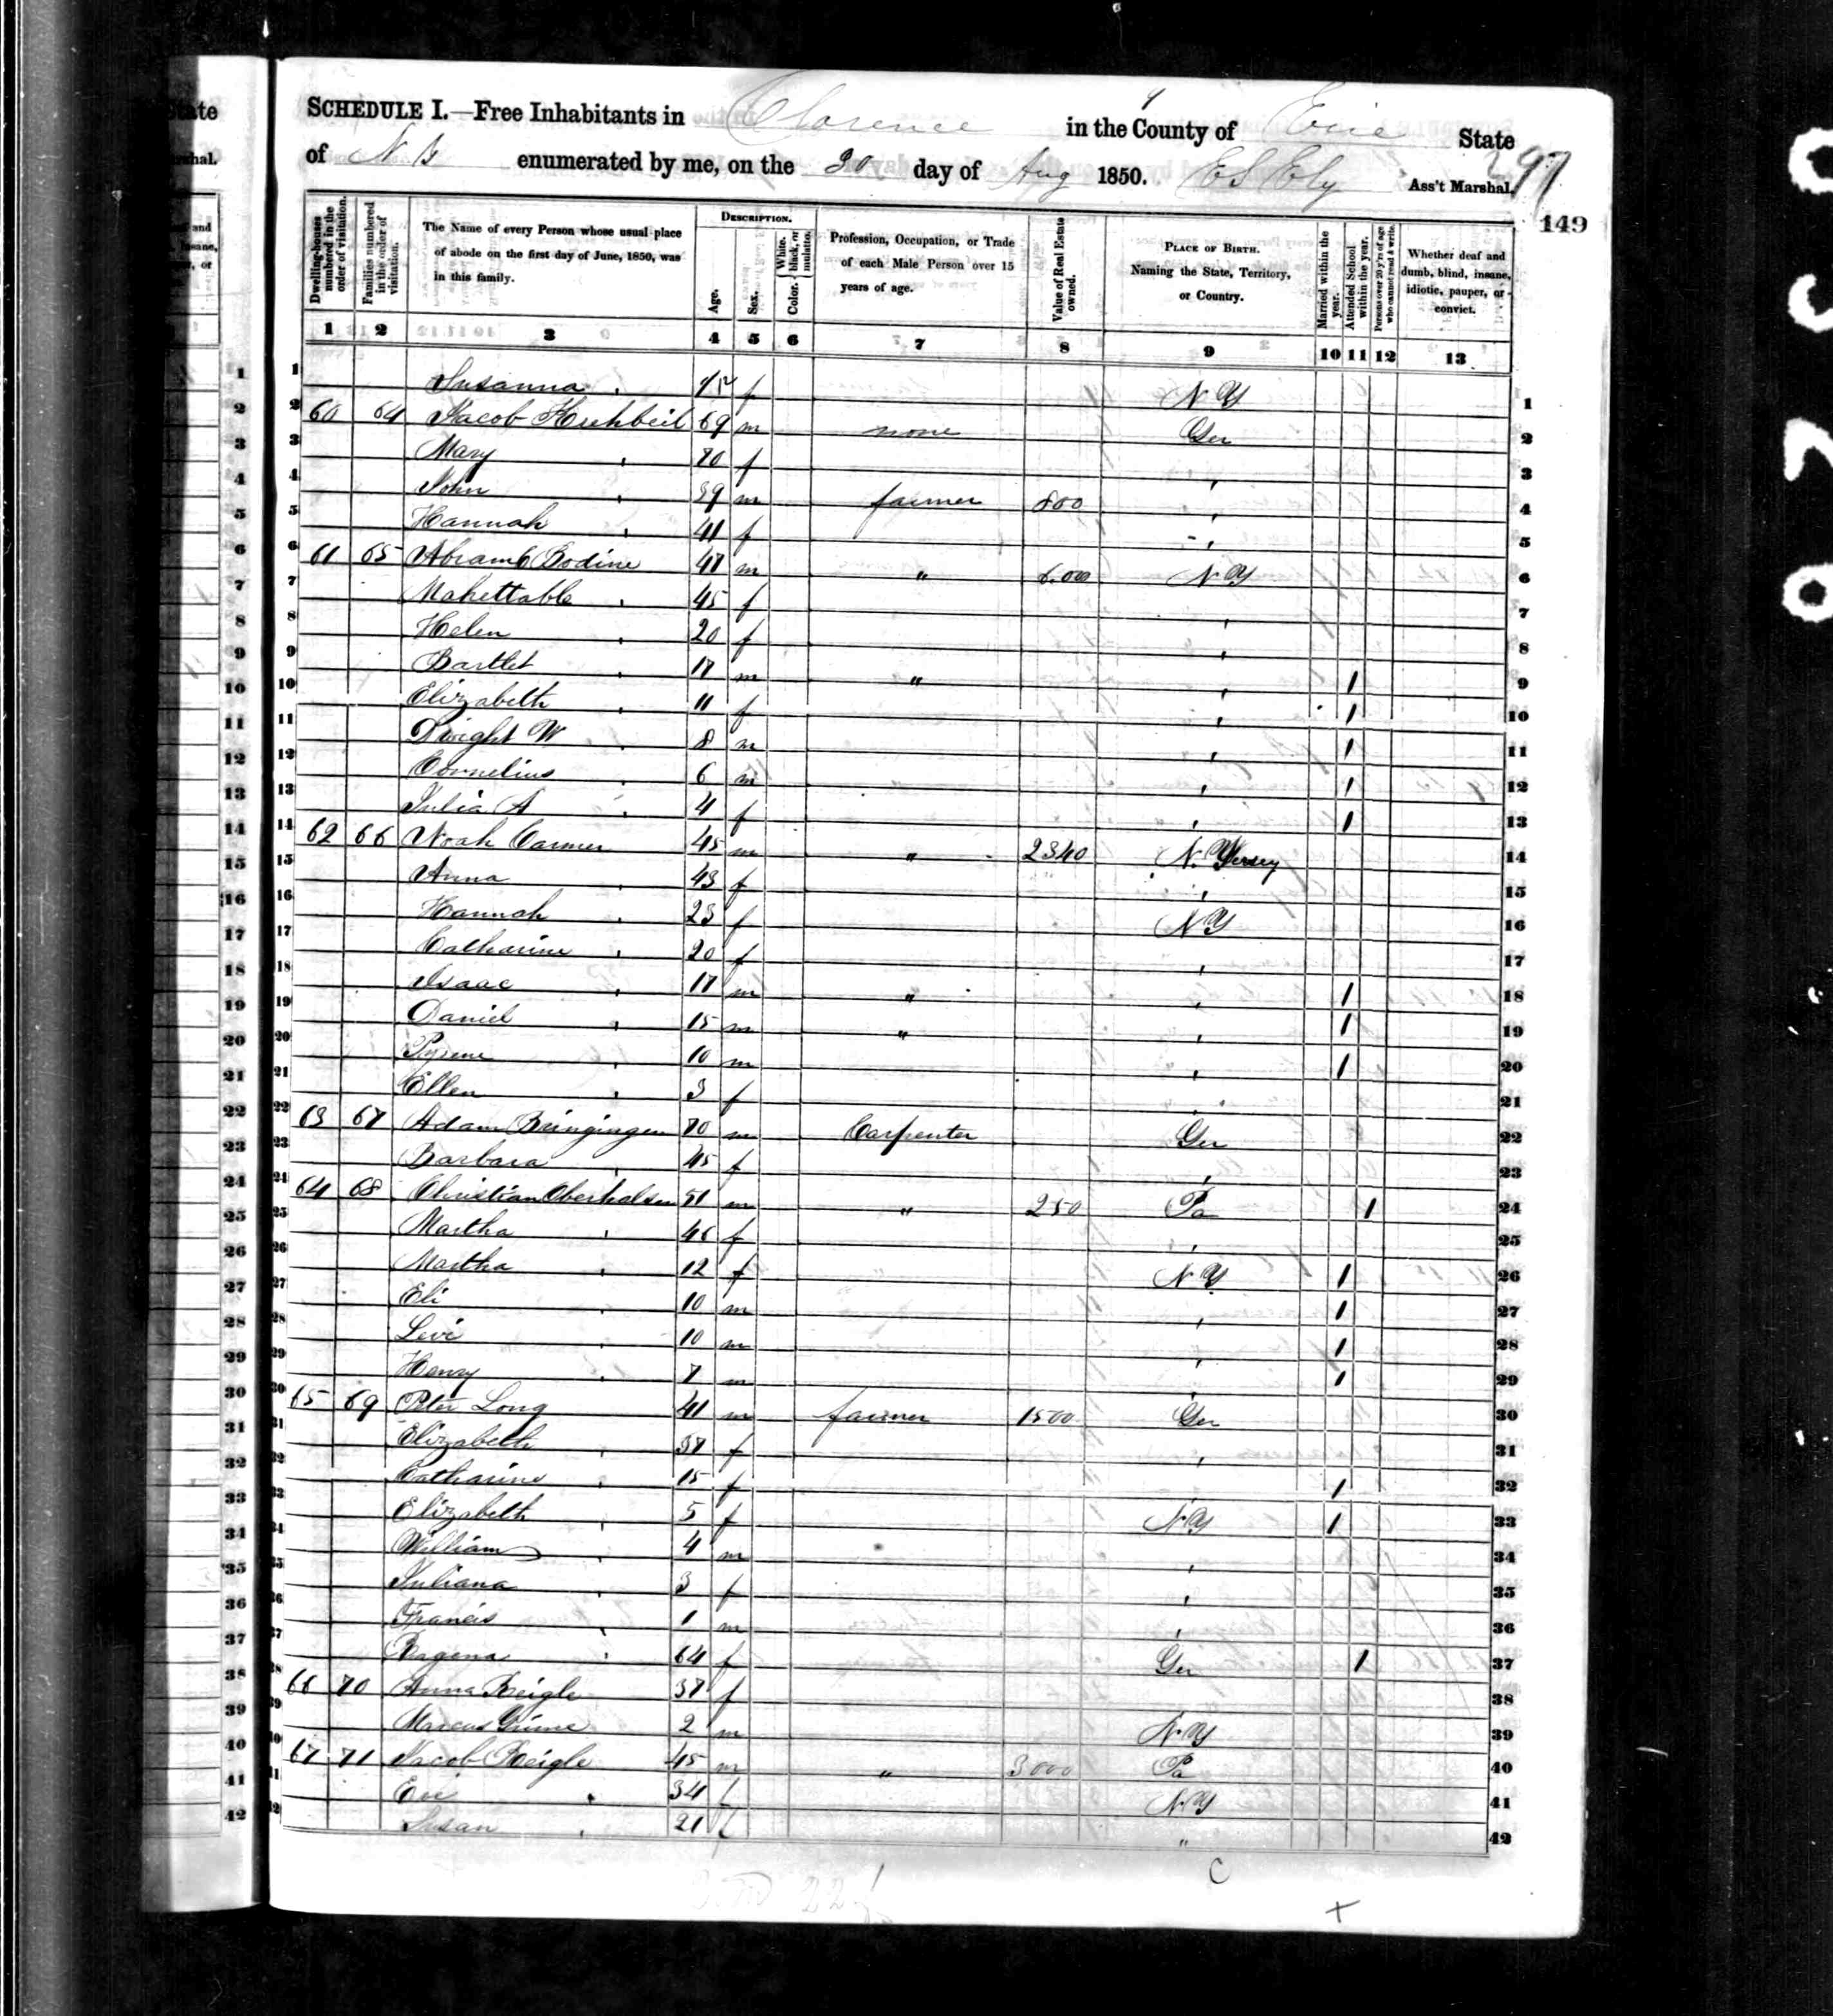 SCHEDULE I.—Free Inhabitants in Clarence in the County of Erie State
of N Y enumerated by me, on the 30 day of Aug 1850. E S Ely Ass't Marshal.
297
149
Dwelling-houses numbered in the order of visitation.
Families numbered in the order of visitation.
The Name of every Person whose usual place of abode on the first day of June, 1850, was in this family.
DESCRIPTION.
Age.
Sex.
Color. White, black, or mulatto.
Profession, Occupation, or Trade of each Male Person over 15 years of age.
Value of Real Estate owned.
PLACE OF BIRTH. Naming the State, Territory, or Country.
Married within the year.
Attended School within the year.
Persons over 20 y'rs of age who cannot read & write.
Whether deaf and dumb, blind, insane, idiotic, pauper, or convict.
1 2 3 4 5 6 7 8 9 10 11 12 13
1 Susanna f N Y 1
2 60 64 Jacob 69 m none Ger 2
3 Mary " 70 f " 3
4 John " 39 m farmer 800 " 4
5 Hannah " 41 f " 5
6 61 65 Abram Bodine 47 m " 6.000 N Y 6
7 Mahettable " 45 f " 7
8 Helen " 20 f " 8
9 Bartlet " 17 m " " 1 9
10 Elizabeth " 11 f " 1 10
11 Dwight W " 8 m " 1 11
12 Cornelius " 6 m " 1 12
13 Julia A " 4 f " 1 13
14 62 66 Noah Carmer 45 m " 2340 N. Jersey 14
15 Anna " 43 f " 15
16 Hannah " 23 f N Y 16
17 Catharine " 20 f " 17
18 Isaac " 17 m " " 1 18
19 Daniel " 15 m " " 1 19
20 " 10 m " 1 20
21 Ellen " 3 f " 21
22 63 67 Adam 70 m Carpenter Ger 22
23 Barbara " 45 f " 23
24 64 68 Christian Oberholser 51 m " 250 Pa 1 24
25 Martha " 46 f " 25
26 Martha " 12 f N Y 1 26
27 Eli " 10 m " 1 27
28 Levi " 10 m " 1 28
29 Henry " 7 m " 1 29
30 65 69 Peter Long 41 m farmer 1500 Ger 30
31 Elizabeth " 37 f " 31
32 Catharine " 15 f " 1 32
33 Elizabeth " 5 f N Y 1 33
34 William " 4 m " 34
35 Juliana " 3 f " 35
36 Francis " 1 m " 36
37 Ragena " 64 f Ger 1 37
38 66 70 Anna Beigle 37 f 38
39 Marcus 2 m N Y 39
40 67 71 Jacob Beigle 45 m " 3000 Pa 40
41 " 34 f N Y 41
42 Susan " 21 f " 42